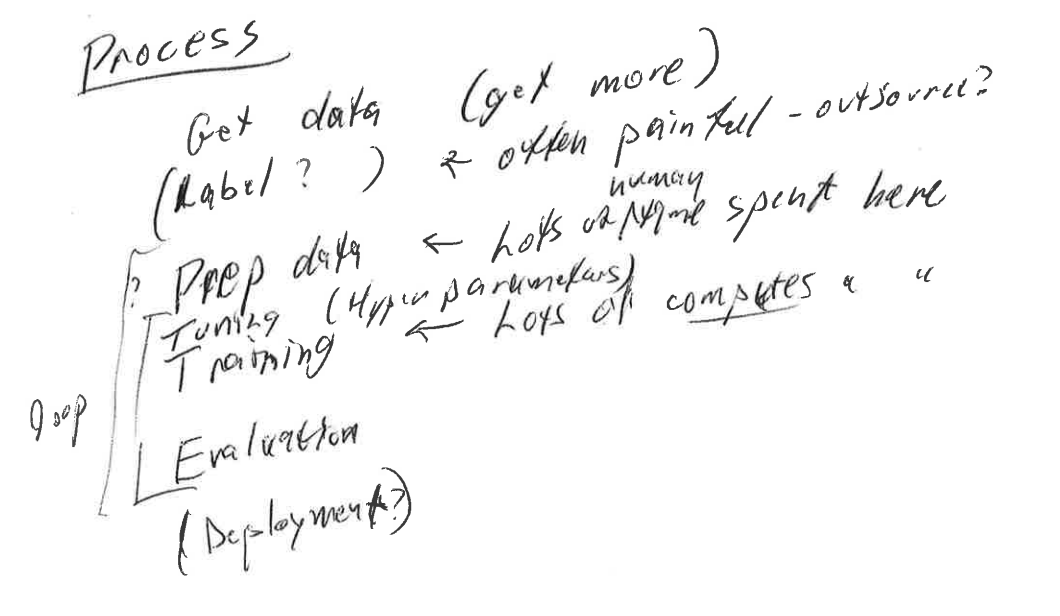 Process
Get data (get more)
(Label?) ← often painful - outsource?
human
? Prep data ← Lots of time spent here
Tuning (Hyper parameters)
Training ← Lots of computes " "
loop
Evaluation
(Deployment?)